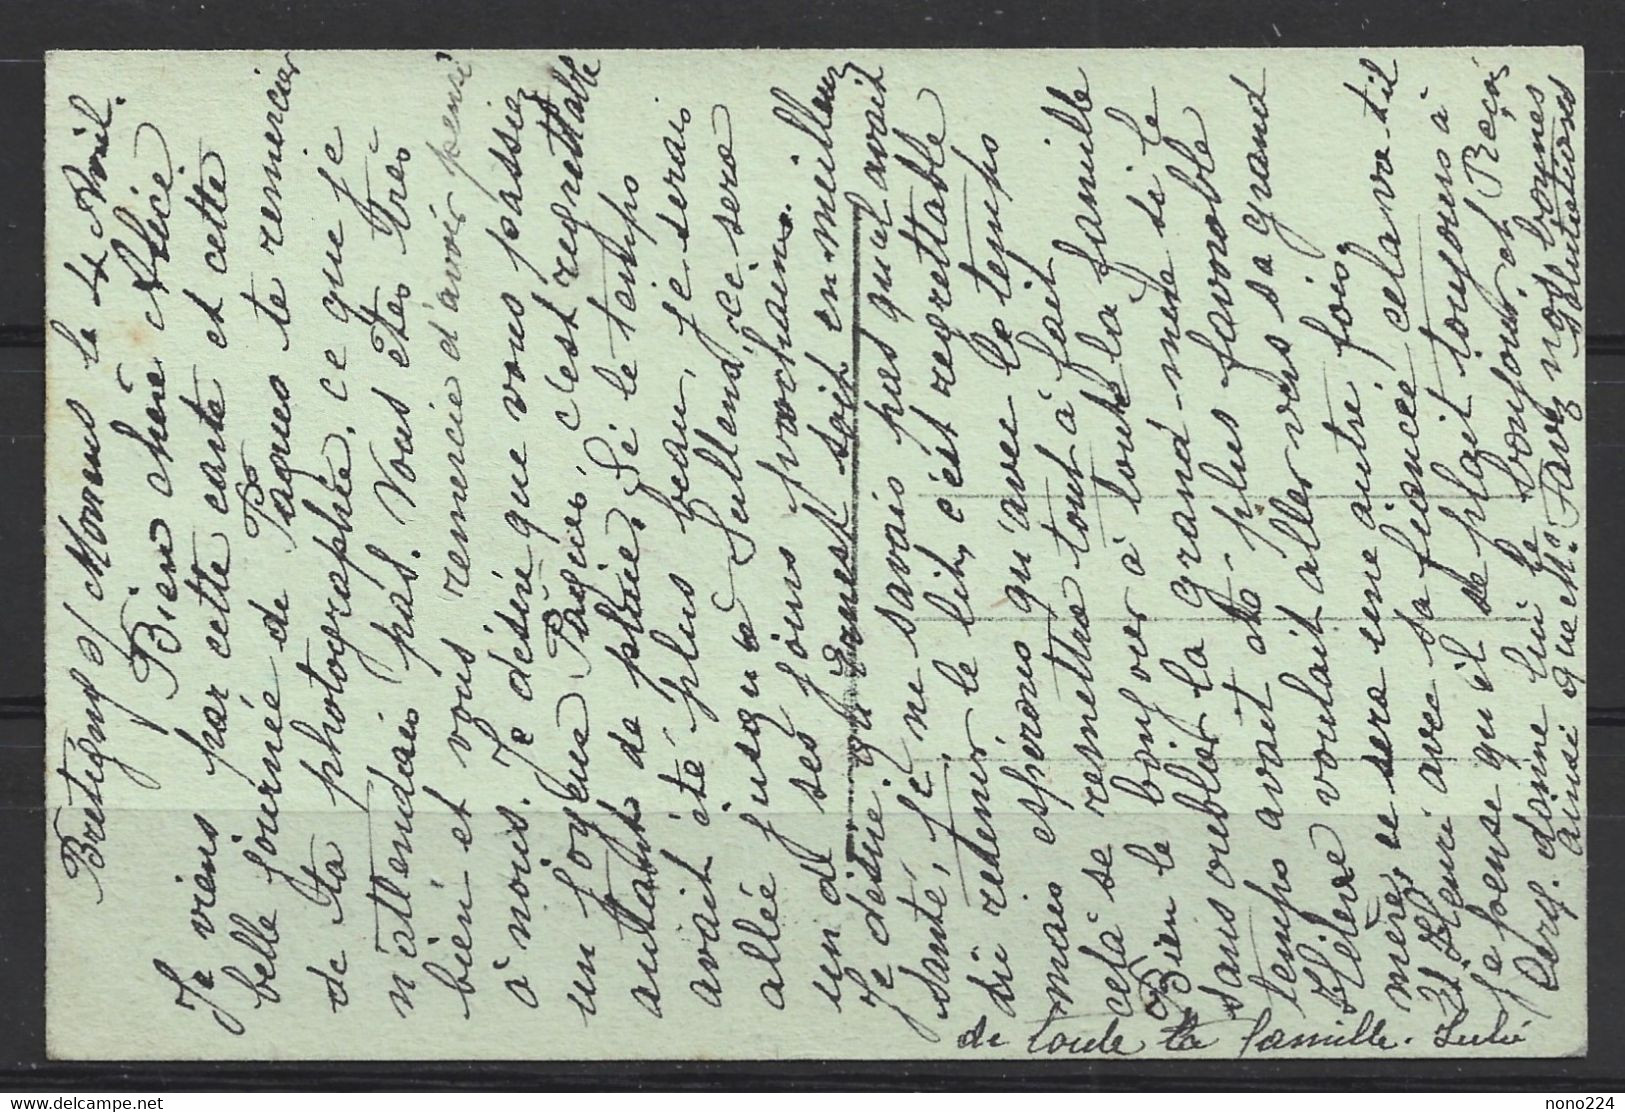 Bretigny s/ Morrens le 4 Avril.
Bien chère Alice
Je viens par cette carte et cette
belle journée de Pâques te remercier
de ta photographie, ce que je
n'attendais pas. Vous êtes très
bien et vous remercie d'avoir pensé
à nois. Je désire que vous passiez
un joyeux Pâques, c'est regrettable
autant de pluie. Si le temps
avait été plus beau, je serais
allée jusqu'a Sullens, ce sera
un de ses jours prochains.
Je désire qu'Ernest soit en meilleure
santé, je ne savais pas qu'il avait
du retenir le lit, c'est regrettable
mais espérons qu'avec le temps
cela se remettra tout à fait
Bien le bonjour à toute la famille
sans oublier la grand-mère si le
temps avait été plus favorable
Hélène voulait aller vers sa grand
mère, ce sera une autre fois,
Et Henri avec sa fiancé, cela va-t-il
je pense qu'il se plait toujours à
donne lui le bonjour, et Reçois
ainsi que Mr Favez nos bonnes
salutations
de toute la famille. Julie
www.delcampe.net
nono224